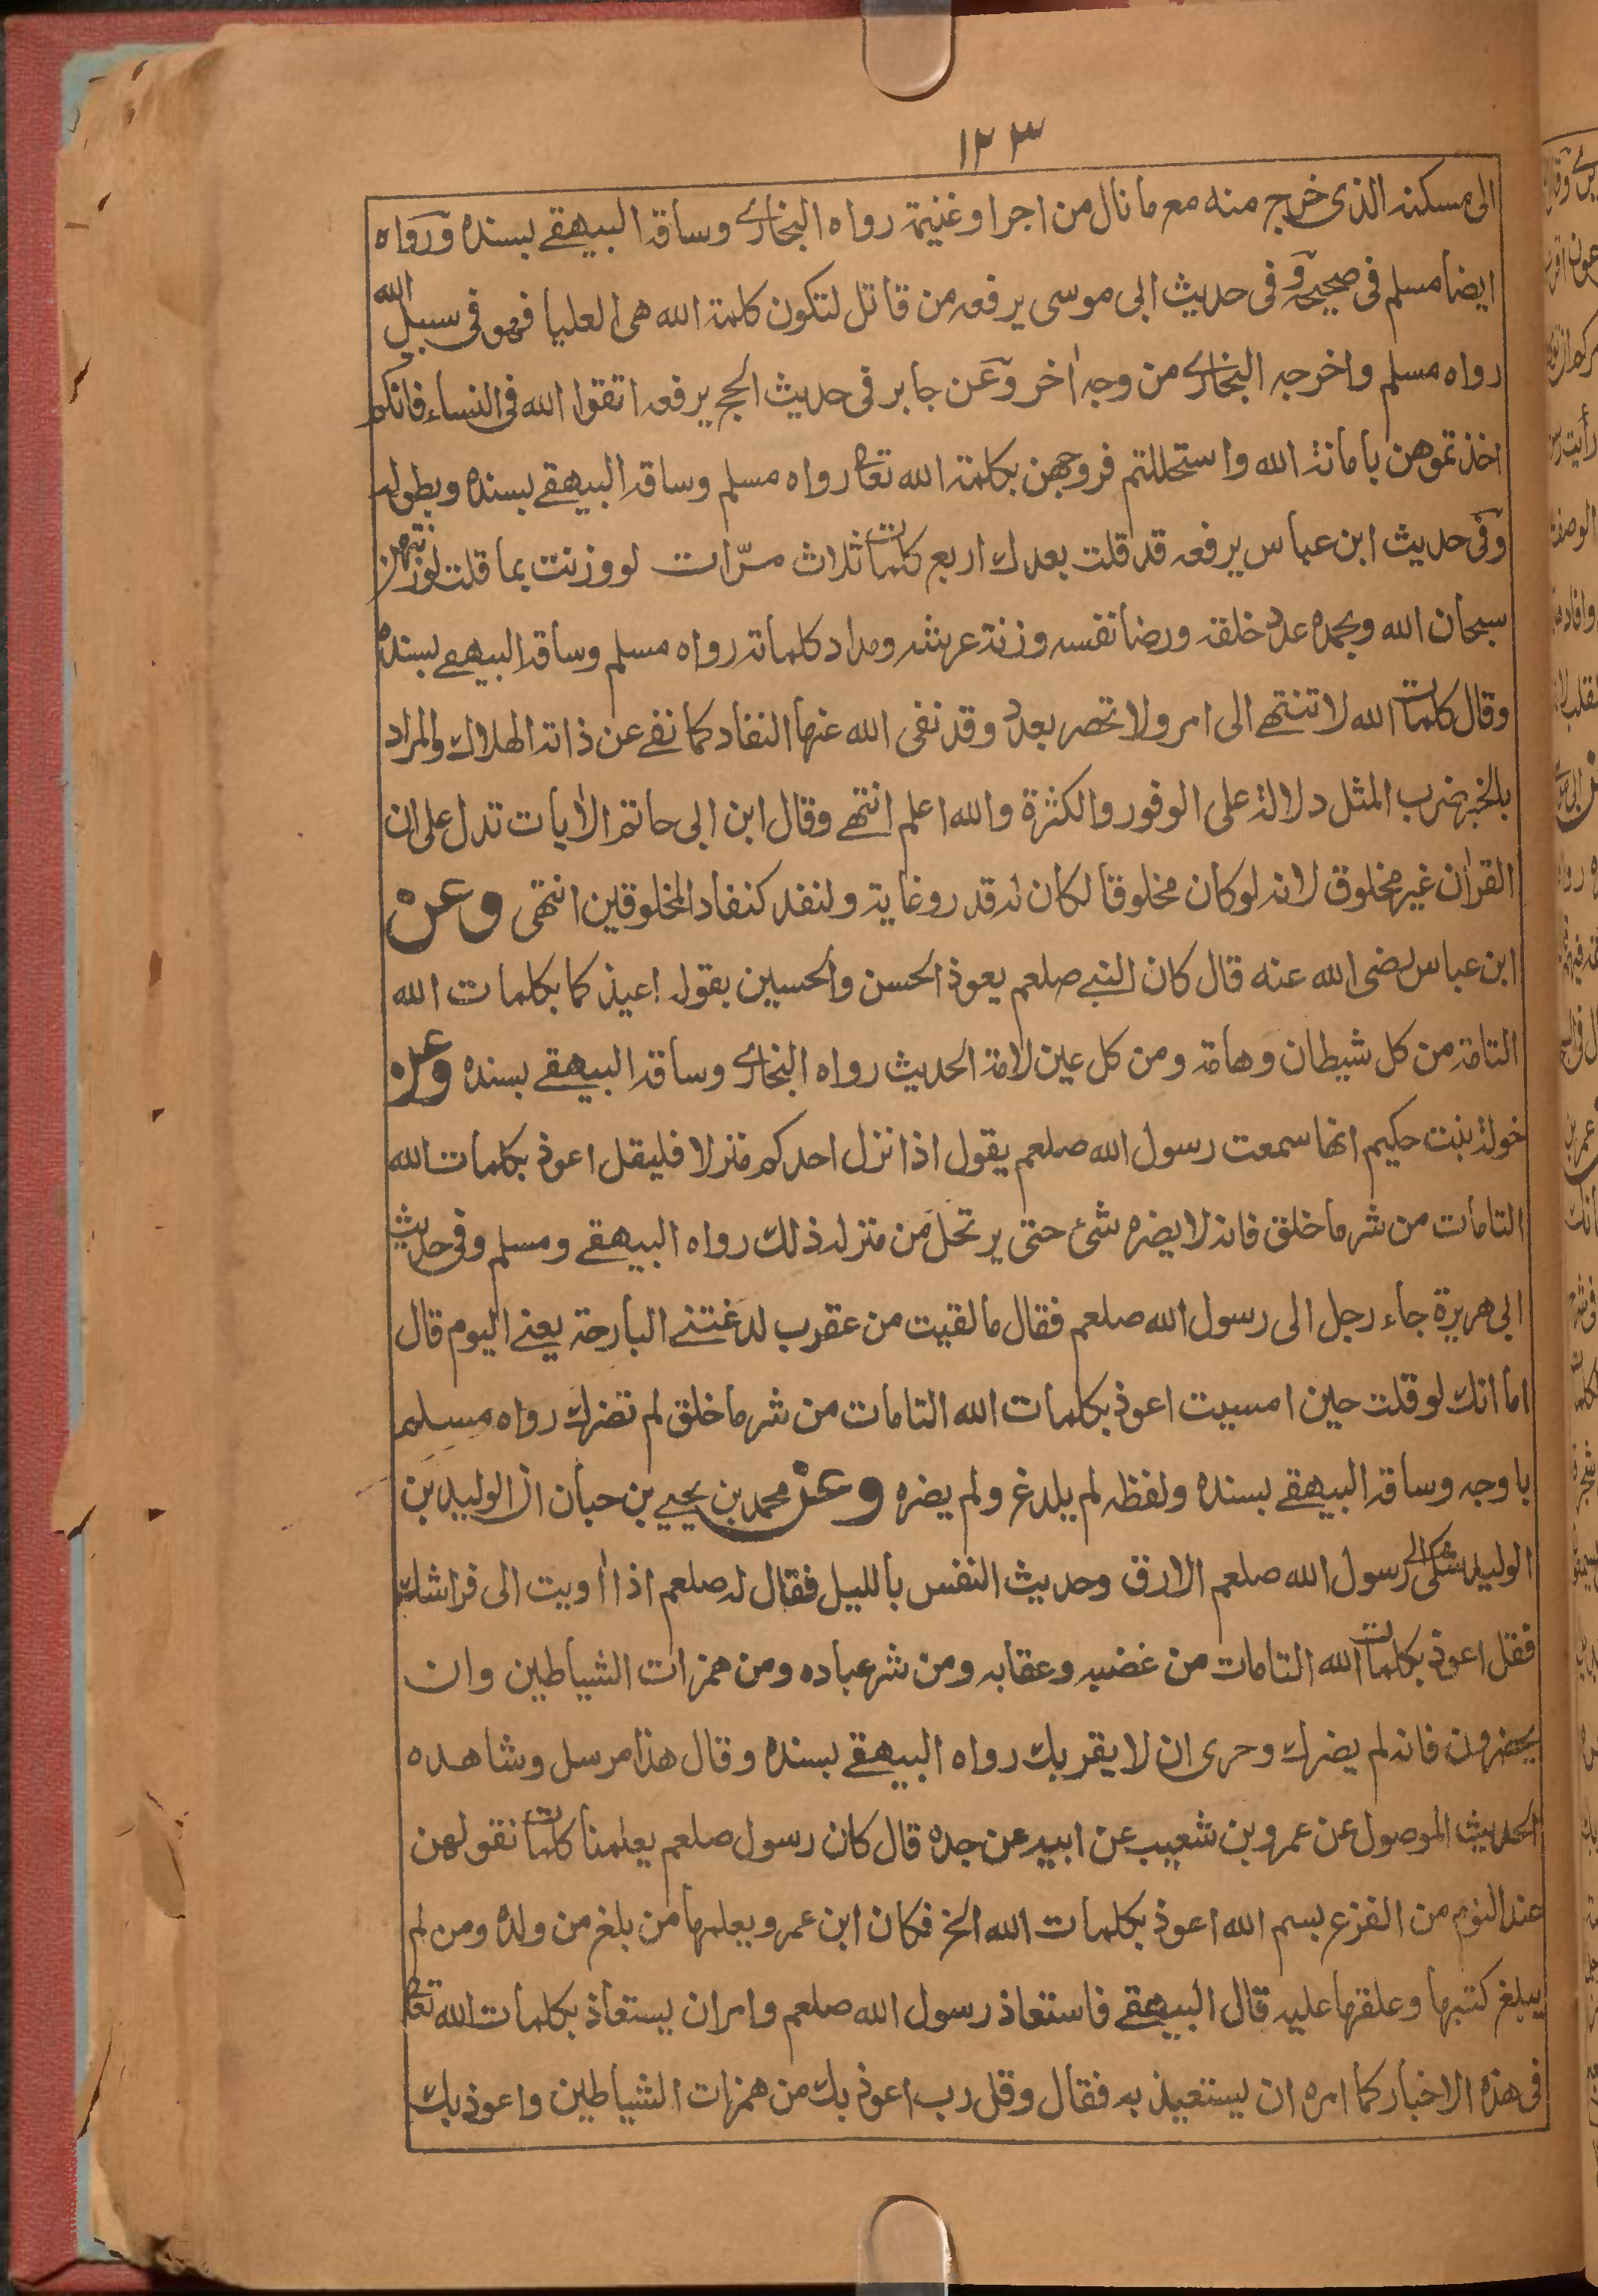 ١٢٣
الى مسكنه الذى خرج منه مع ما نال من اجر او غنيمة رواه البخارى وساقه البيهقے بسنده ورواه
ايضا مسلم فى صحيحه وفى حديث ابى موسى يرفعه من قاتل لتكون كلمة الله هى العليا فهو فى سبيل الله
رواه مسلم واخرجه البخارى من وجه اٰخر وعن جابر فى حديث الحج يرفعه اتقوا الله فى النساء فانكم
اخذتموهن بامانة الله واستحللتم فروجهن بكلمة الله تعا رواه مسلم وساقه البيهقے بسنده وبطوله
وفى حديث ابن عباس يرفعه قد قلت بعدك اربع كلمات ثلاث مرّات لو وزنت بما قلت لوزنتهن
سبحان الله وبحمده عدد خلقه ورضا نفسه وزنة عرشه ومداد كلماته رواه مسلم وساقه البيهقے بسنده
وقال كلمات الله لا تنتهے الى امر ولا تحصر بعدد وقد نفى الله عنها النفاد كما نفے عن ذاته الهلاك والمراد
بالخبر ضرب المثل دلالة على الوفور والكثرة والله اعلم انتهے وقال ابن ابى حاتم الاٰيات تدل على ان
القراٰن غير مخلوق لانه لو كان مخلوقا لكان له قدر وغاية ولنفد كنفاد المخلوقين انتهى وعن
ابن عباس رضى الله عنه قال كان النبے صلعم يعوذ الحسن والحسين بقوله اعيذكما بكلمات الله
التامة من كل شيطان وهامة ومن كل عين لامة الحديث رواه البخارى وساقه البيهقے بسنده وعن
خولة بنت حكيم انها سمعت رسول الله صلعم يقول اذا نزل احدكم منزلا فليقل اعوذ بكلمات الله
التامات من شر ما خلق فانه لا يضره شئ حتى يرتحل من منزله ذلك رواه البيهقے ومسلم وفى حديث
ابى هريرة جاء رجل الى رسول الله صلعم فقال ما لقيت من عقرب لدغتنے البارحة يعنے اليوم قال
اما انك لو قلت حين امسيت اعوذ بكلمات الله التامات من شر ما خلق لم تضرك رواه مسلم
باوجه وساقه البيهقے بسنده ولفظه لم يلدغ ولم يضره وعن محمد بن يحيے بن حبان ان الوليد بن
الوليد شكى الے رسول الله صلعم الارق وحديث النفس بالليل فقال له صلعم اذا اويت الى فراشك
فقل اعوذ بكلمات الله التامات من غضبه وعقابه ومن شر عباده ومن همزات الشياطين وان
يحضرون فانه لم يضرك وحرى ان لا يقربك رواه البيهقے بسنده وقال هذا مرسل وشاهده
الحديث الموصول عن عمرو بن شعيب عن ابيه عن جده قال كان رسول صلعم يعلمنا كلمات نقولهن
عند النوم من الفزع بسم الله اعوذ بكلمات الله الخ فكان ابن عمرو يعلمها من بلغ من ولده ومن لم
يبلغ كتبها وعلقها عليه قال البيهقے فاستعاذ رسول الله صلعم وامر ان يستعاذ بكلمات الله تعا
فى هذه الاخبار كما امره ان يستعيذ به فقال وقل رب اعوذ بك من همزات الشياطين واعوذ بك